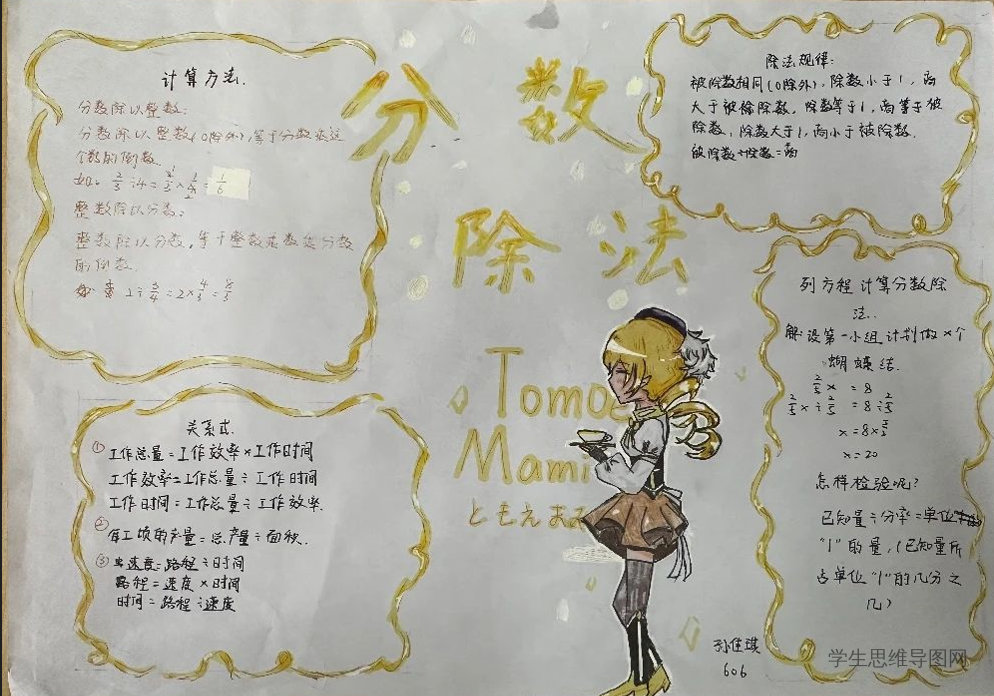 分数
除法
计算方法.
分数除以整数:
分数除以整数(0除外),等于分数乘这
个数的倒数.
如: 2/3÷4=2/3×1/4=1/6
整数除以分数:
整数除以分数,等于整数乘数这分数
的倒数.
如 2÷3/4=2×4/3=8/3
除法规律:
被除数相同(0除外),除数小于1,商
大于被除数,除数等于1,商等于被
除数,除数大于1,商小于被除数.
被除数÷除数=商
Tomoe
Mami
ともえまみ
关系式.
① 工作总量=工作效率×工作时间
工作效率=工作总量÷工作时间
工作时间=工作总量÷工作效率.
② 每工顷的产量=总产量÷面积.
③ 速度=路程÷时间
路程=速度×时间
时间=路程÷速度
列方程计算分数除
法.
解:设第一小组计划做x个
蝴蝶结.
2/5x=8
2/5x÷2/5=8÷2/5
x=8×5/2
x=20
怎样检验呢?
已知量÷分率=单位
"1"的量,(已知量所
占单位"1"的几分之
几)
孙佳琪
606
学生思维导图网